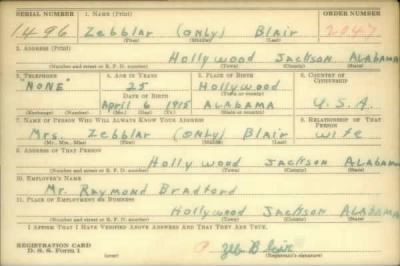 SERIAL NUMBER 1. NAME (Print) ORDER NUMBER
1496 Zebblar (only) Blair 2047
(First) (Middle) (Last)
2. ADDRESS (Print)
Hollywood Jackson Alabama
(Number and street or R. F. D. number) (Town) (County) (State)
3. TELEPHONE 4. AGE IN YEARS 5. PLACE OF BIRTH 6. COUNTRY OF CITIZENSHIP
"NONE" 25 Hollywood
DATE OF BIRTH (Town or county)
April 6 1915 ALABAMA U.S.A.
(Exchange) (Number) (Mo.) (Day) (Yr.) (State or country)
7. NAME OF PERSON WHO WILL ALWAYS KNOW YOUR ADDRESS 8. RELATIONSHIP OF THAT PERSON
Mrs. Zebblar (only) Blair wife
(Mr., Mrs., Miss) (First) (Middle) (Last)
9. ADDRESS OF THAT PERSON
Hollywood Jackson Alabama
(Number and street or R. F. D. number) (Town) (County) (State)
10. EMPLOYER'S NAME
Mr. Raymond Bradford
11. PLACE OF EMPLOYMENT OR BUSINESS
Hollywood Jackson Alabama
(Number and street or R. F. D. number) (Town) (County) (State)
I AFFIRM THAT I HAVE VERIFIED ABOVE ANSWERS AND THAT THEY ARE TRUE.
REGISTRATION CARD
D. S. S. Form 1 (over) (Registrant's signature)